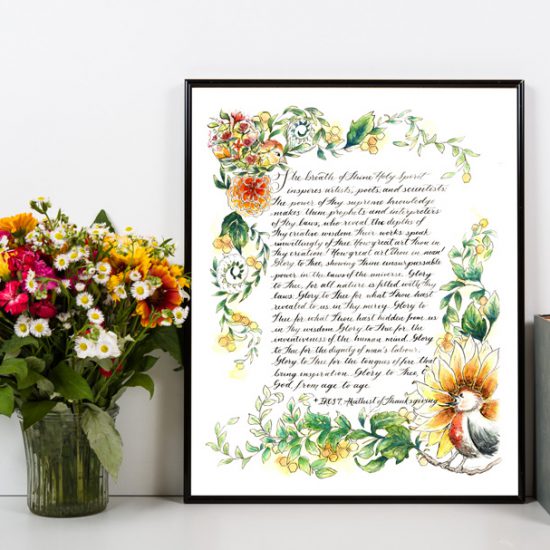 The breath of Thine Holy Spirit
inspires artists, poets, and scientists.
The power of Thy supreme knowledge
makes them prophets and interpreters
of Thy laws, who reveal the depths of
Thy creative wisdom. Their works speak
unwittingly of Thee. How great art Thou in
Thy creation! How great art Thou in man!
Glory to Thee, showing Thine unsurpassable
power in the laws of the universe. Glory
to Thee, for all nature is filled with Thy
laws. Glory to Thee for what Thou hast
revealed to us in Thy mercy. Glory to
Thee for what Thou hast hidden from us
in Thy wisdom. Glory to Thee for the
inventiveness of the human mind. Glory
to Thee for the dignity of man's labour.
Glory to Thee for the tongues of fire that
bring inspiration. Glory to Thee, O
God, from age to age
Akathist of Thanksgiving